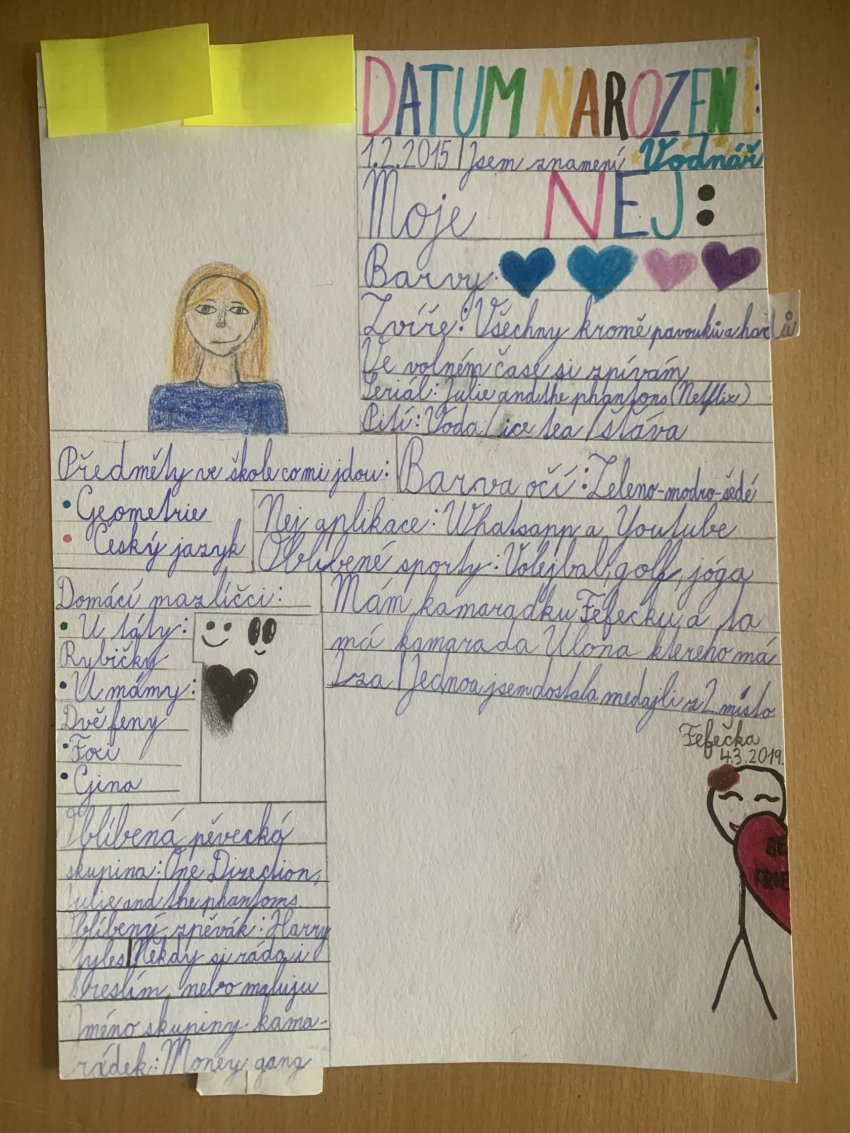 DATUM NAROZENÍ:
1.2.2015 | Jsem znamení Vodnář
Moje NEJ:
Barvy:
Zvíře: Všechny kromě pavouků a hadů
Ve volném čase si zpívám
Seriál: Julie and the phantons (Netflix)
Pití: Voda / ice tea / šťáva
Předměty ve škole co mi jdou:
• Geometrie
• Český jazyk
Barva očí: Zeleno-modro-šedé
Nej aplikace: Whatsapp a Youtube
Oblíbené sporty: Volejbal, golf, jóga
Domácí mazlíčci:
• U táty:
Rybičky
• U mámy:
Dvě feny
• Fori
• Gina
Mám kamarádku Fefečku a ta
má kamaráda Ulona kterého má
jsem dostala medajli z 2. místo
Fefečka
4.3.2019.
BE
FRIE
Oblíbená pěvecká
skupina: One Direction,
Julie and the phantoms
Oblíbený zpěvák: Harry
Styles | Někdy si ráda i
kreslím, nebo maluju
Jméno skupiny kama-
rádek: Money gang